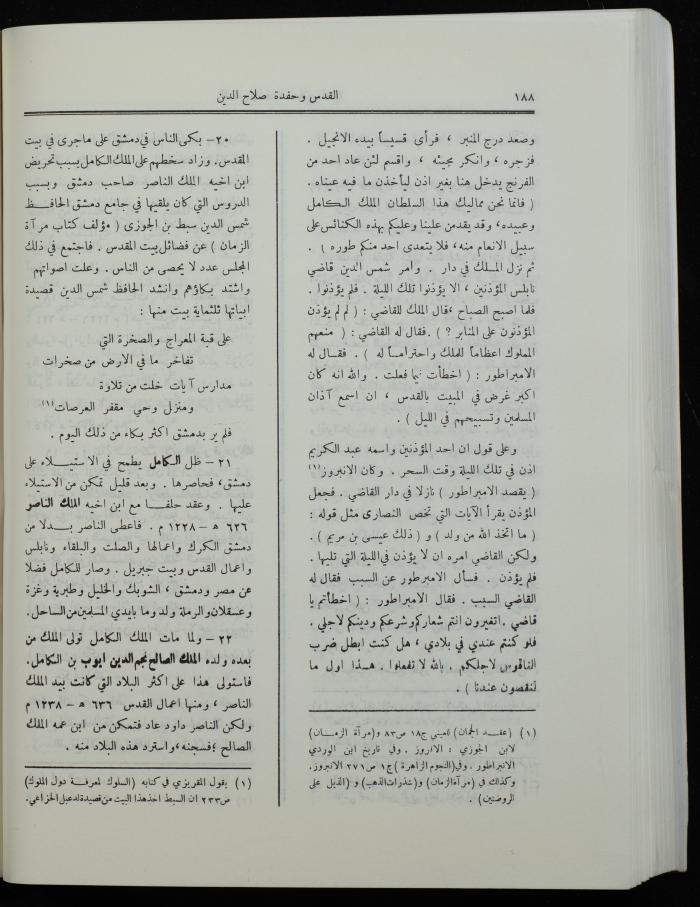 ١٨٨
القدس وحفدة صلاح الدين
وصعد درج المنبر ، فرأى قسيساً بيده الانجيل .
فزجره ، وانكر مجيئه ، واقسم لئن عاد احد من
الفرنج يدخل هنا بغير اذن ليأخذن ما فيه عيناه .
( فانما نحن مماليك هذا السلطان الملك الكامل
وعبيده، وقد يقدمن علينا وعليكم بهذه الكنائس على
سبيل الانعام منه، فلا يتعدى احد منكم طوره ) .
ثم نزل الملك في دار . وامر شمس الدين قاضي
نابلس المؤذنين ، الا يؤذنوا تلك الليلة . فلم يؤذنوا .
فلما اصبح الصباح ،قال الملك للقاضي : ( لم لم يؤذن
المؤذنون على المنابر ? ) .فقال له القاضي : ( منعهم
المملوك اعظاماً للملك واحتراماً له ) . فقال له
الامبراطور : ( اخطأت فيما فعلت . والله انه كان
اكبر غرض في المبيت بالقدس ، ان اسمع آذان
المسلمين وتسبيحهم في الليل ) .
وعلى قول ان احد المؤذنين واسمه عبد الكريم
اذن في تلك الليلة وقت السحر . وكان الانبروز (١)
( يقصد الامبراطور ) نازلا في دار القاضي . فجعل
المؤذن يقرأ الآيات التي تخص النصارى مثل قوله :
( ما اتخذ الله من ولد ) و ( ذلك عيسى بن مريم ) .
ولكن القاضي امره ان لا يؤذن في الليلة التي تليها .
فلم يؤذن . فسأل الامبرطور عن السبب فقال له
القاضي السبب . فقال الامبراطور : ( اخطأتم يا
قاضي .اتغيرون انتم شعاركم وشرعكم ودينكم لاجلي .
فلو كنتم عندي في بلادي ، هل كنت ابطل ضرب
الناقوس لاجلكم . بالله لا تفعلوا . هذا اول ما
تنقصون عندنا ) .
(١) (عقد الجمان) للعيني ج١٨ ص٨٣ و(مرآة الزمان)
لابن الجوزي : الانبروز . وفي تاريخ ابن الوردي
الانبراطور . وفي(النجوم الزاهرة ) ج١ ص٢٧١ الانبروز.
وكذلك في (مرآةالزمان) و(شذرات الذهب) و (الذيل على
الروضتين) .
٢٠ – بكى الناس في دمشق على ماجرى في بيت
المقدس. وزاد سخطهم على الملك الكامل بسبب تحريض
ابن اخيه الملك الناصر صاحب دمشق وبسبب
الدروس التي كان يلقيها في جامع دمشق الحافظ
شمس الدين سبط بن الجوزى ( مؤلف كتاب مرآة
الزمان ) عن فضائل بيت المقدس . فاجتمع في ذلك
المجلس عدد لا يحصى من الناس . وعلت اصواتهم
واشتد بكاؤهم وانشد الحافظ شمس الدين قصيدة
ابياتها ثلثماية بيت منها :
على قبة المعراج والصخرة التي
تفاخر ما في الارض من صخرات
مدارس آيات خلت من تلاوة
ومنزل وحي مقفر العرصات(١)
فلم ير بدمشق اكثر بكاء من ذلك اليوم .
٢١ – ظل الكامل يطمح في الاستيلاء على
دمشق، فحاصرها . وبعد قليل تمكن من الاستيلاء
عليها . وعقد حلفاً مع ابن اخيه الملك الناصر
٦٢٦ ه – ١٢٢٨ م . فاعطى الناصر بدلا من
دمشق الكرك واعمالها والصلت والبلقاء ونابلس
واعمال القدس وبيت جبريل . وصار للكامل فضلا
عن مصر ودمشق ، الشوبك والخليل وطبرية وغزة
وعسقلان والرملة ولد وما بايدي المسلمين من الساحل.
٢٢ – ولما مات الملك الكامل تولى الملك من
بعده ولده الملك الصالح نجم الدين ايوب بن الكامل.
فاستولى هذا على اكثر البلاد التي كانت بيد الملك
الناصر ، ومنها اعمال القدس ٦٣٦ ه – ١٢٣٨ م
ولكن الناصر داود عاد فتمكن من ابن عمه الملك
الصالح ؛فسجنه، واسترد هذه البلاد منه .
(١) يقول المقريزي في كتابه (السلوك لمعرفة دول الملوك)
ص٢٣٣ ان السبط اخذ هذا البيت من قصيدة لدعبل الخزاعي.